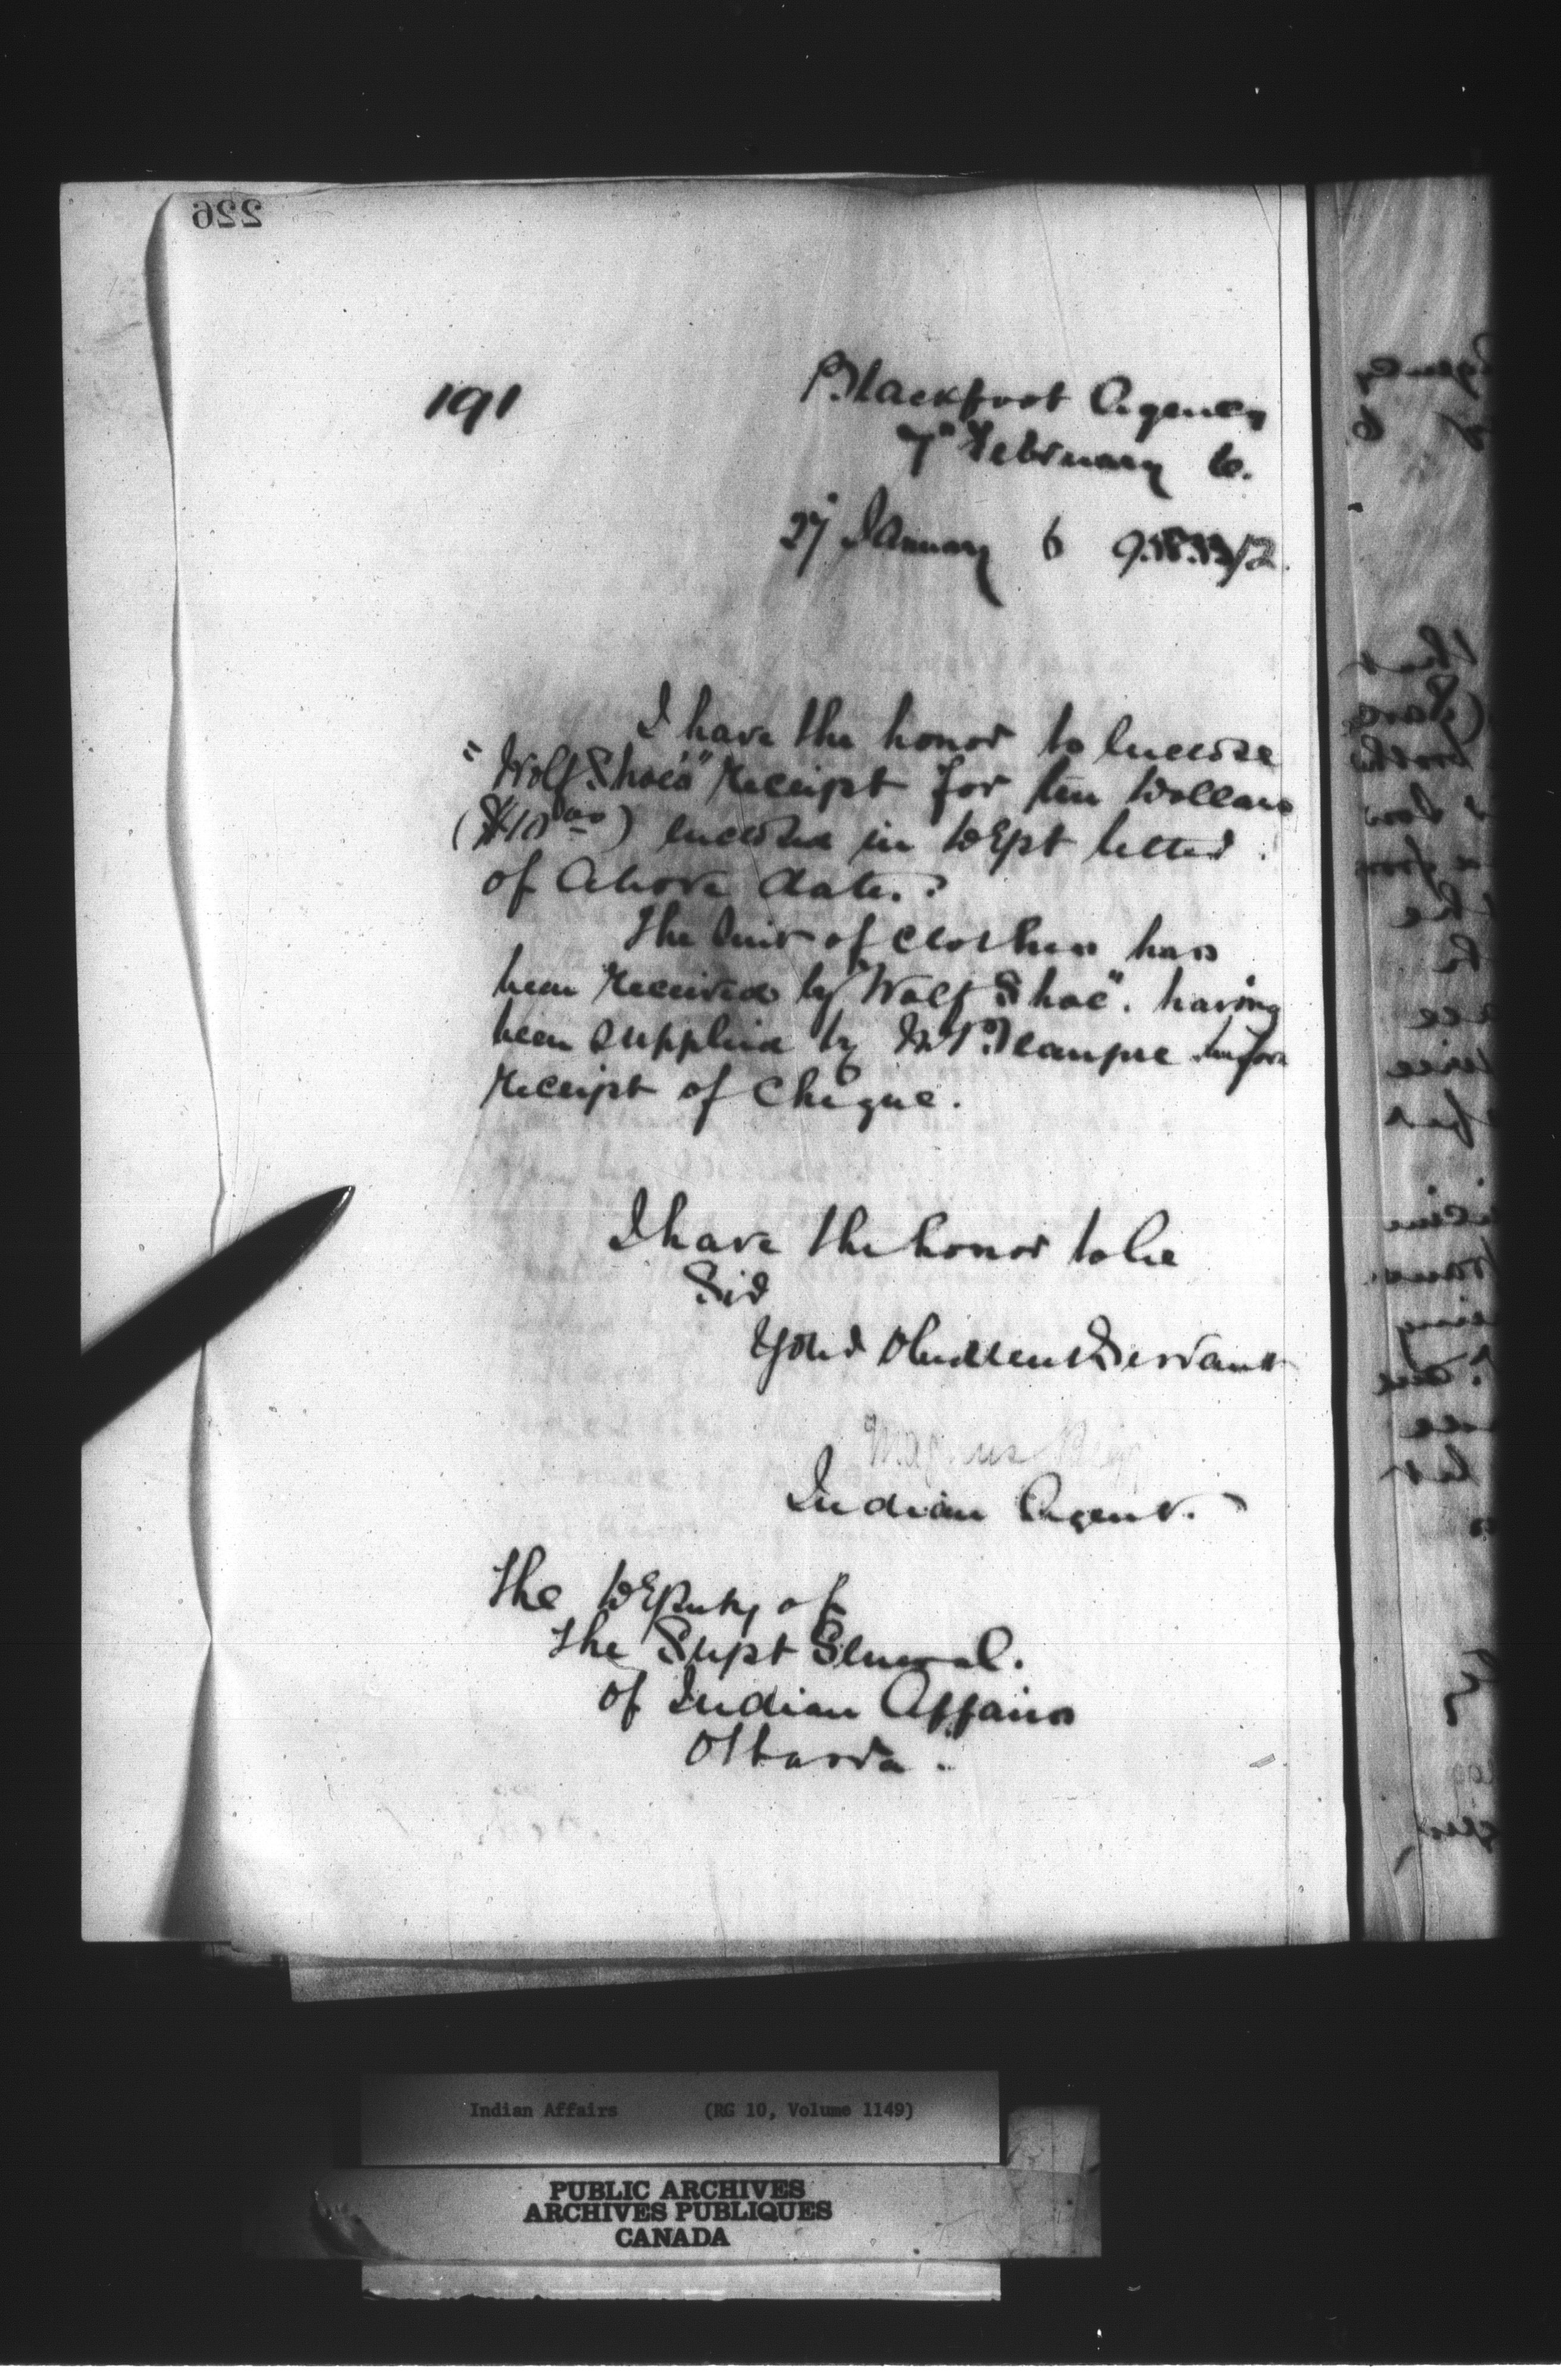 226
191
Blackfoot Agency
7th February 6.
27 January 6
I have the honor to enclose
"Wolf Shoe's" receipt for ten Dollars
($10 00) enclosed in Dept letter
of above date.
The suit of clothes has
been received by "Wolf Shoe". having
been supplied by Mr Beaupre before
receipt of cheque.
I have the honor to be
Sir
Your Obedient Servant
Magnus Begg
Indian Agent.
The Deputy of
the Supt General.
of Indian Affairs
Ottawa.
Indian Affairs (RG 10, Volume 1149)
PUBLIC ARCHIVES
ARCHIVES PUBLIQUES
CANADA